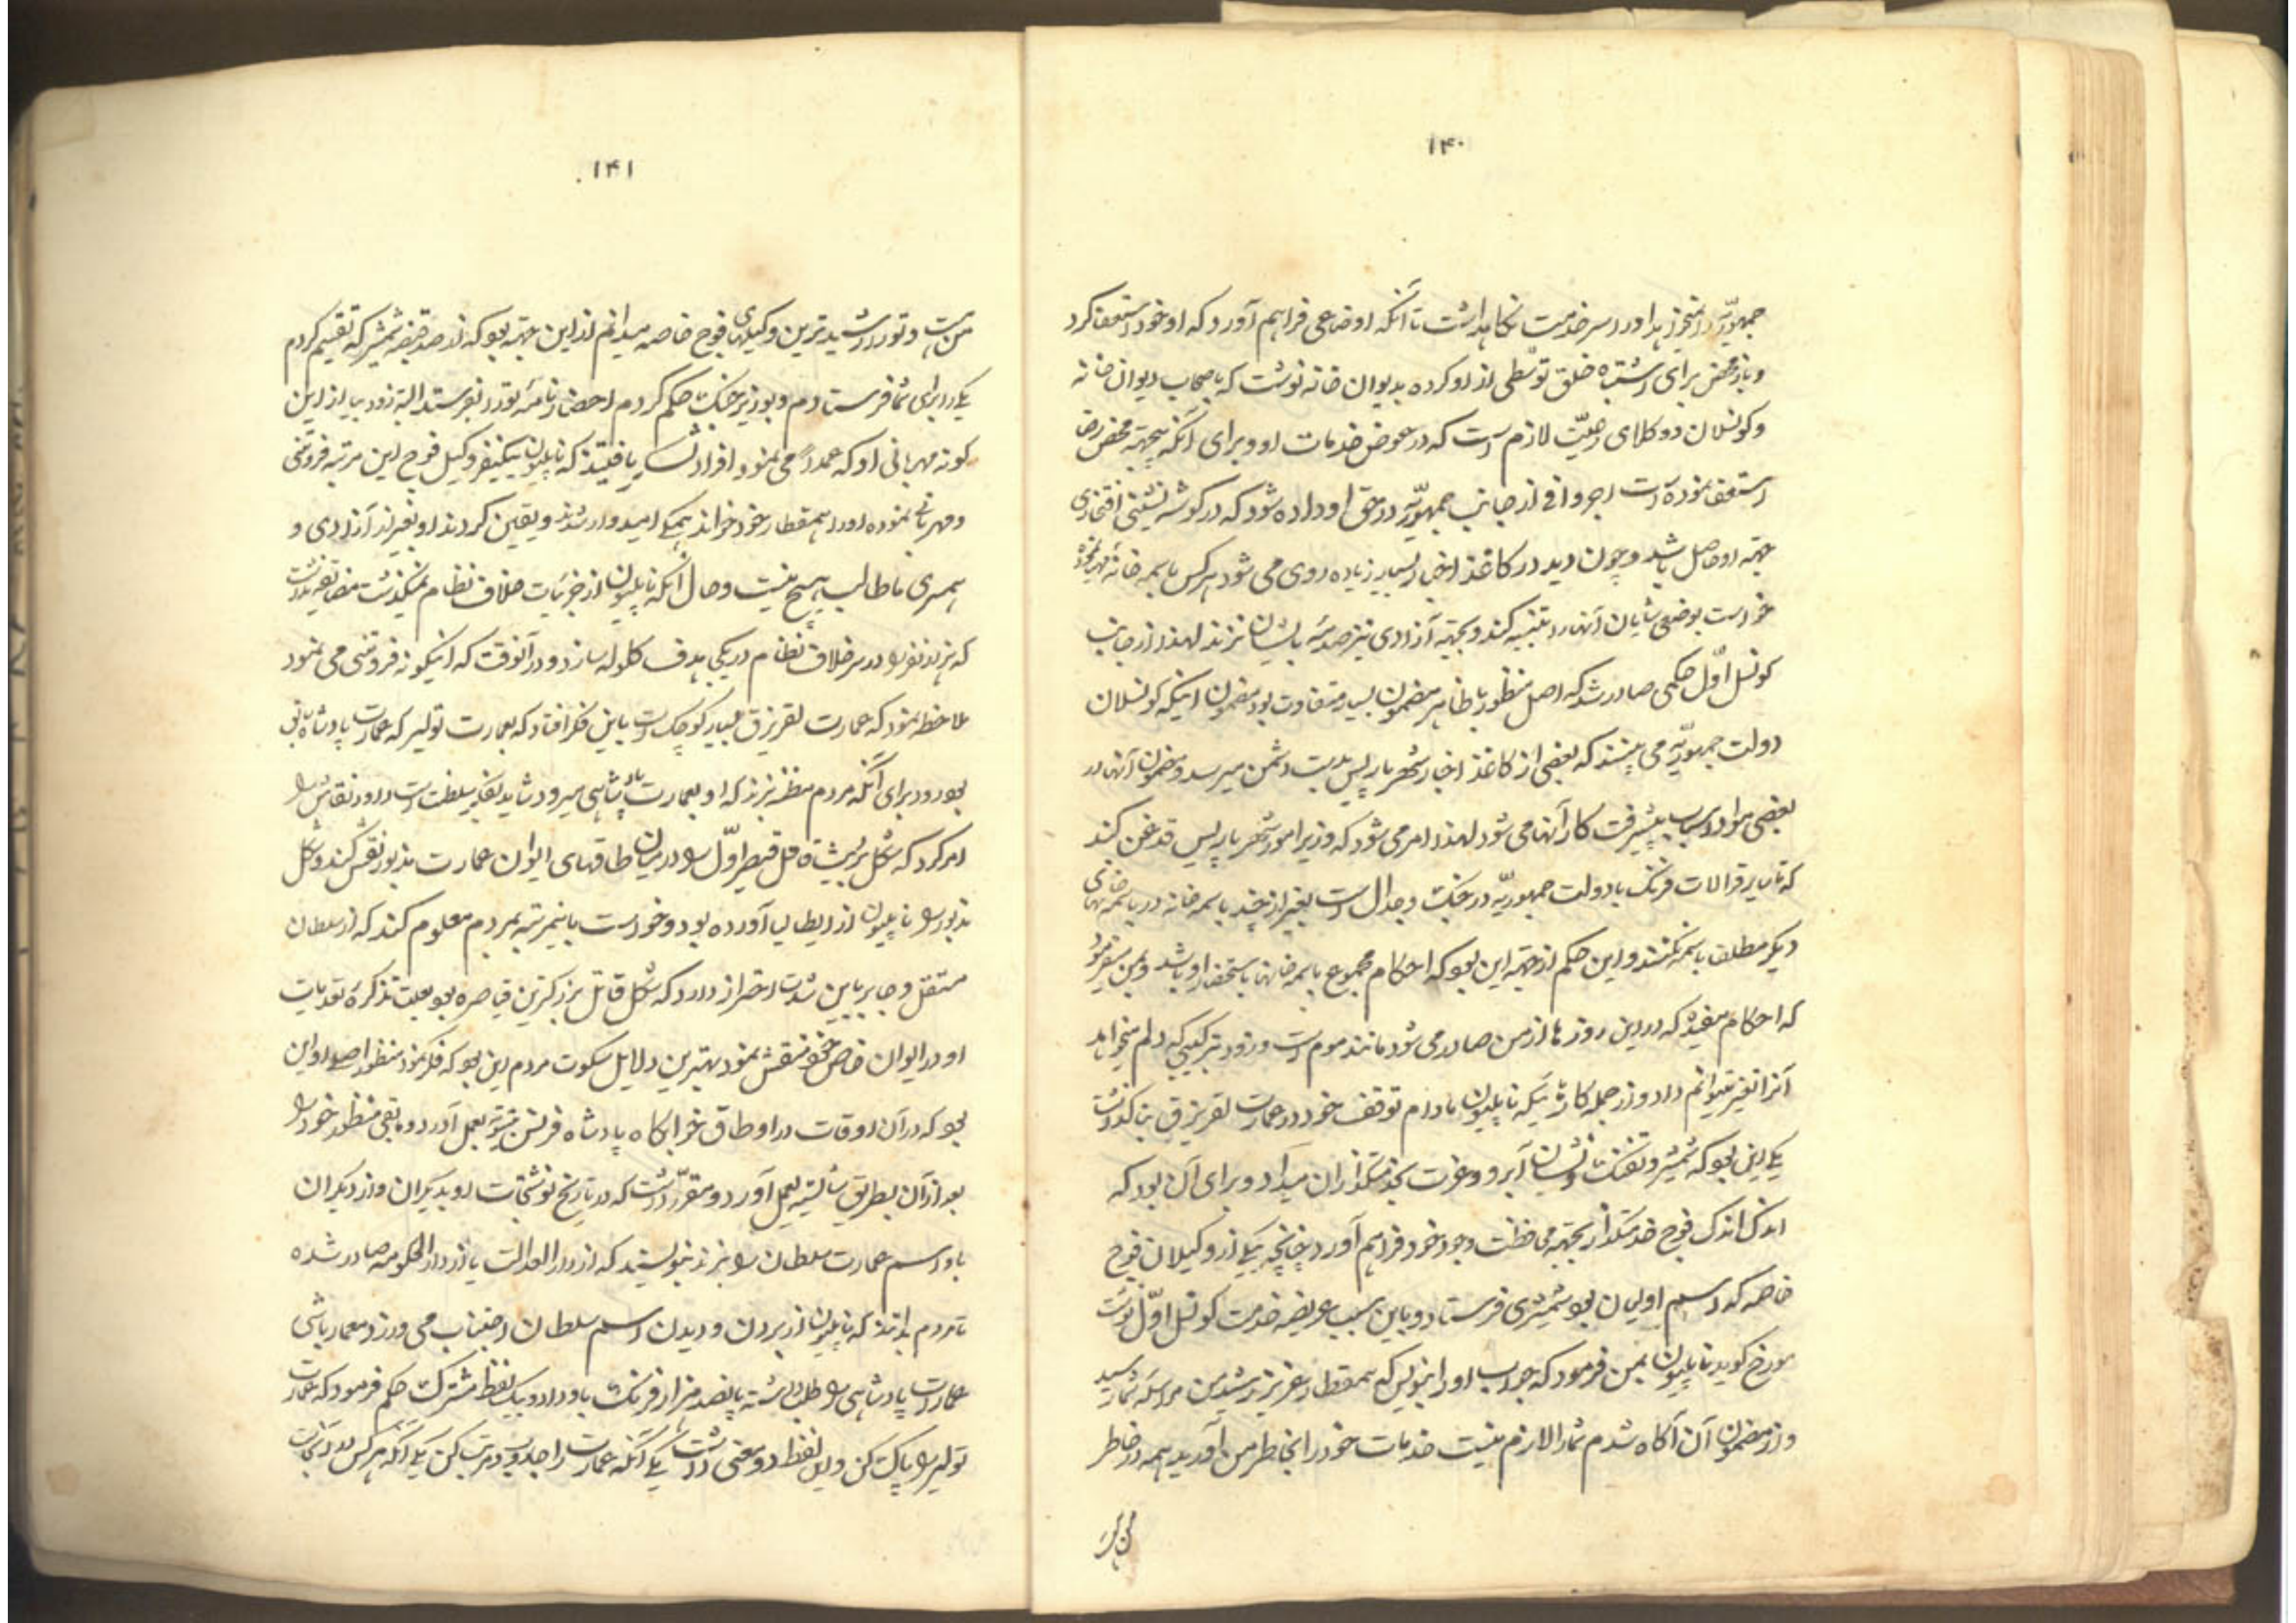 ۱۴۰
جمهوریّه را منحرف نمود او را در سر خدمت نگاهداشت تا آنکه اوضاعی فراهم آورد که او خود استعفا کرد
و باز محض برای اشتباه خلق توسّطی از او کرده بدیوان خانه نوشت که باصحاب دیوان خانه
و کونسلان و وکلای رعیّت لازم است که در عوض خدمات او و برای آنکه بیجهة محض رضا
استعفا نموده است اجر وافی از جانب جمهوریّه در حق او داده شود که در گوشه نشینی افتخاری
جهة او حاصل باشد و چون دید در کاغذ اخبار بسیار زیاده روی می شود هر کس باسمه خانه
خواست بوضعی شایان آنها را تنبیه کند و بجهة آزادی نیز صدمۀ بایشان نزند لهذا از جانب
کونسل اوّل حکمی صادر شد که اصل منظور با ظاهر مضمون بسیار متفاوت بود مضمون اینکه کونسلان
دولت جمهوریّه می بینند که بعضی از کاغذ اخبار شهر پاریس بدست دشمن میرسد و مضمون آنها در
بعضی مواد اسباب پیشرفت کار آنها می شود لهذا امر می شود که وزیر امور شهر پاریس قدغن کند
که تا سایر قرالات فرنگ با دولت جمهوریّه در جنگ و جدال است بغیر از چند باسمه خانه در باسمه خانهای
دیگر مطلقا باسمه نکنند و این حکم از جهة این بود که احکام مجموع باسمه خانها باستحضار او باشد و بمن میفرمود
که احکام مفیده که در این روزها از من صادر می شود مانند موم است و زود بترکیبی که دلم میخواهد
آنرا تغییر میتوانم داد و از جمله کارهائیکه ناپلیون مادام توقف خود در عمارت لقزیزق بنا گذاشت
یکی این بود که شمشیر و تفنگ با نشان آبرو و عزت بخدمتگذاران میداد و برای آن بود که
اندک اندک فوج خدمتگذار بجهة محافظت وجود خود فراهم آورد چنانچه یکی از وکیلان فوج
خاصه که اسم اولیان بود شمشیری فرستاد و باین سبب عریضه خدمت کونسل اوّل نوشت
مورخ گوید ناپلیون بمن فرمود که جواب او را بنویس که همقطار عزیز رشید من مراسلۀ شما رسید
و از مضمون آن آگاه شدم شما را لازم نیست خدمات خود را بخاطر من آورید همه در خاطر
من هست
۱۴۱
من هست و تو را رشیدترین وکیلهای فوج خاصه میدانم از این جهة بود که از صد قبضه شمشیر که تقسیم کردم
یکی را برای شما فرستادم و بوزیر جنگ حکم کردم احضار نامۀ تو را بفرستد البته زود بیا از این
گونه مهربانی او که عمداً می نمود افراد لشکر یافتند که ناپلیون بیکنفر وکیل فوج این مرتبه فروتنی
و مهربانی نموده او را همقطار خود خواند همگی امیدوار شدند و یقین کردند او بغیر از آزادی و
همسری ما طالب هیچ نیست و حال آنکه ناپلیون از جزئیات خلاف نظام نمیگذشت مضایقه نداشت
که هزار نفر را در سر خلاف نظام در یکی هدف گلوله سازد و در آنوقت که اینگونه فروتنی می نمود
ملاحظه نمود که عمارت لقزیزق بسیار کوچک است باین فکر افتاد که بعمارت تولیر که عمارت پادشاهی
بود رود برای آنکه مردم مظنه نبرند که او بعمارت پادشاهی میرود شاید بفکر سلطنت است اولا نقاش را
امر کرد که شکل بریشاه قتل قیصر اوّل را در میان طاقهای ایوان عمارت مذبور نقش کند و شکل
مذبور را ناپلیون از ایطالیا آورده بود و خواست باینمرتبه بمردم معلوم کند که از سلطان
مستقل و جابر باین شدت احتراز دارد که شکل قاتل بزرگترین قیاصره بود بعلت تذکرۀ تعدیات
او در ایوان خاص خود منقش نمود بهترین دلایل سکوت مردم این بود که فکر نمود منظور اصلی او این
بود که در آن اوقات در اوطاق خوابگاه پادشاه فرانس بعمل آورد و مابقی منظور خود را
بعد از آن بطریق شایسته بعمل آورد و مقرّر داشت که در تاریخ نوشتجات او بدیگران و از دیگران
باو اسم عمارت سلطان را نبرند بنویسند که از دار العدالت یا از دار الحکومه صادر شده
تا مردم بدانند که ناپلیون از بردن و دیدن اسم سلطان اجتناب می ورزد معمار باشی
عمارت پادشاهی را طلب داشته پانصد هزار فرنگ باو داد و بیک لفظ مشترک حکم فرمود که عمارت
تولیر را پاک کن و این لفظ دو معنی داشت یکی آنکه عمارت را جاروب و مرتب کن یکی آنکه هر کس در آنجاست